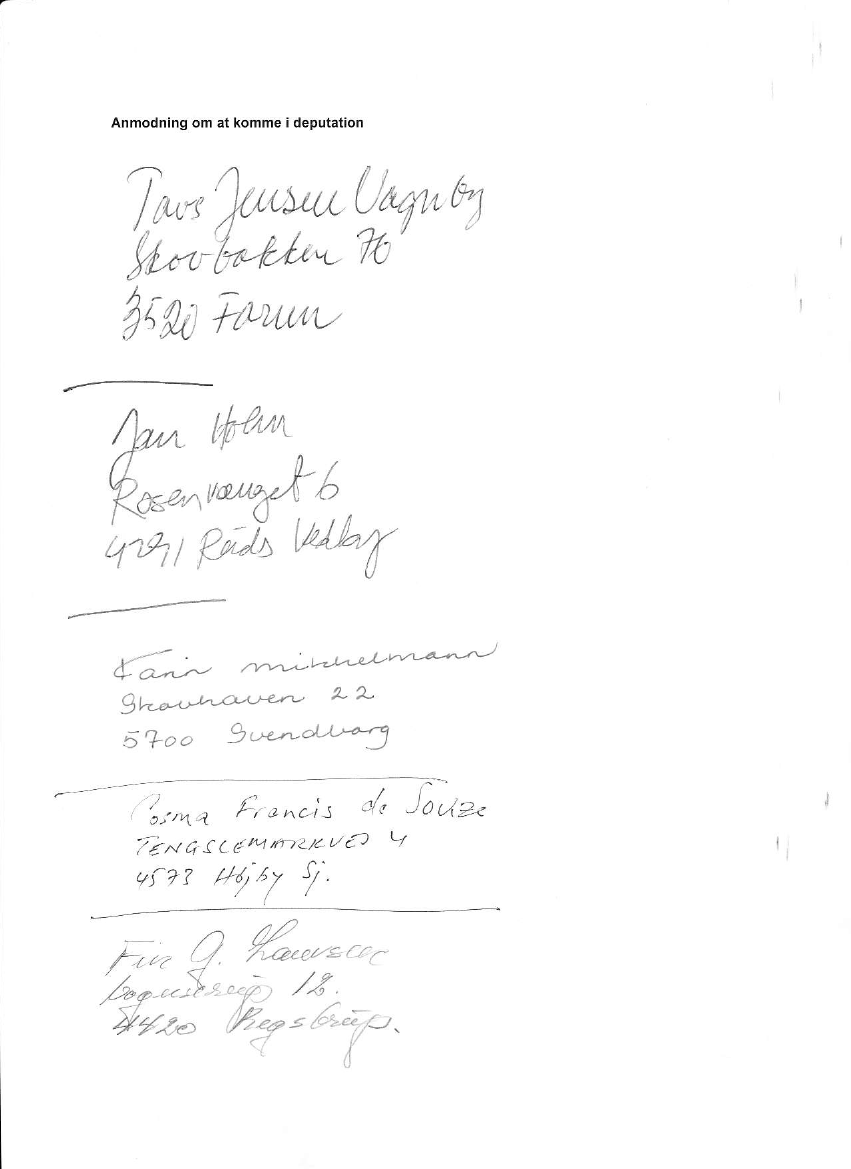 Anmodning om at komme i deputation
Tavs Jensen Vagnby
Skovbakken 76
3520 Farum
Jan Holm
Rosenvænget 6
4291 Ruds Vedby
Karin mikkelmann
Skovhaven 22
5700 Svendborg
Cosma Francis de Souza
TENGSLEMARKVEJ 4
4573 Højby Sj.
G.
12.
4420 Regstrup.